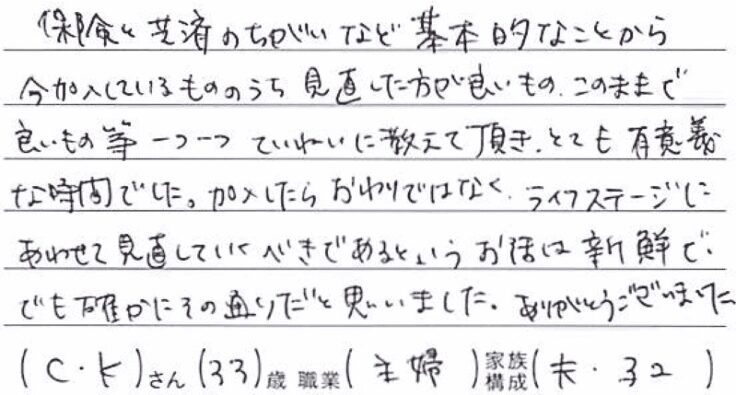 保険と共済のちがいなど基本的なことから
今加入しているもののうち見直した方が良いもの、このままで
良いもの等一つ一つていねいに教えて頂き、とても有意義
な時間でした。加入したらおわりではなく、ライフステージに
あわせて見直していくべきであるというお話は新鮮で、
でも確かにその通りだと思いました。ありがとうございました
(C・K)さん(33)歳 職業(主婦)家族構成(夫・32)